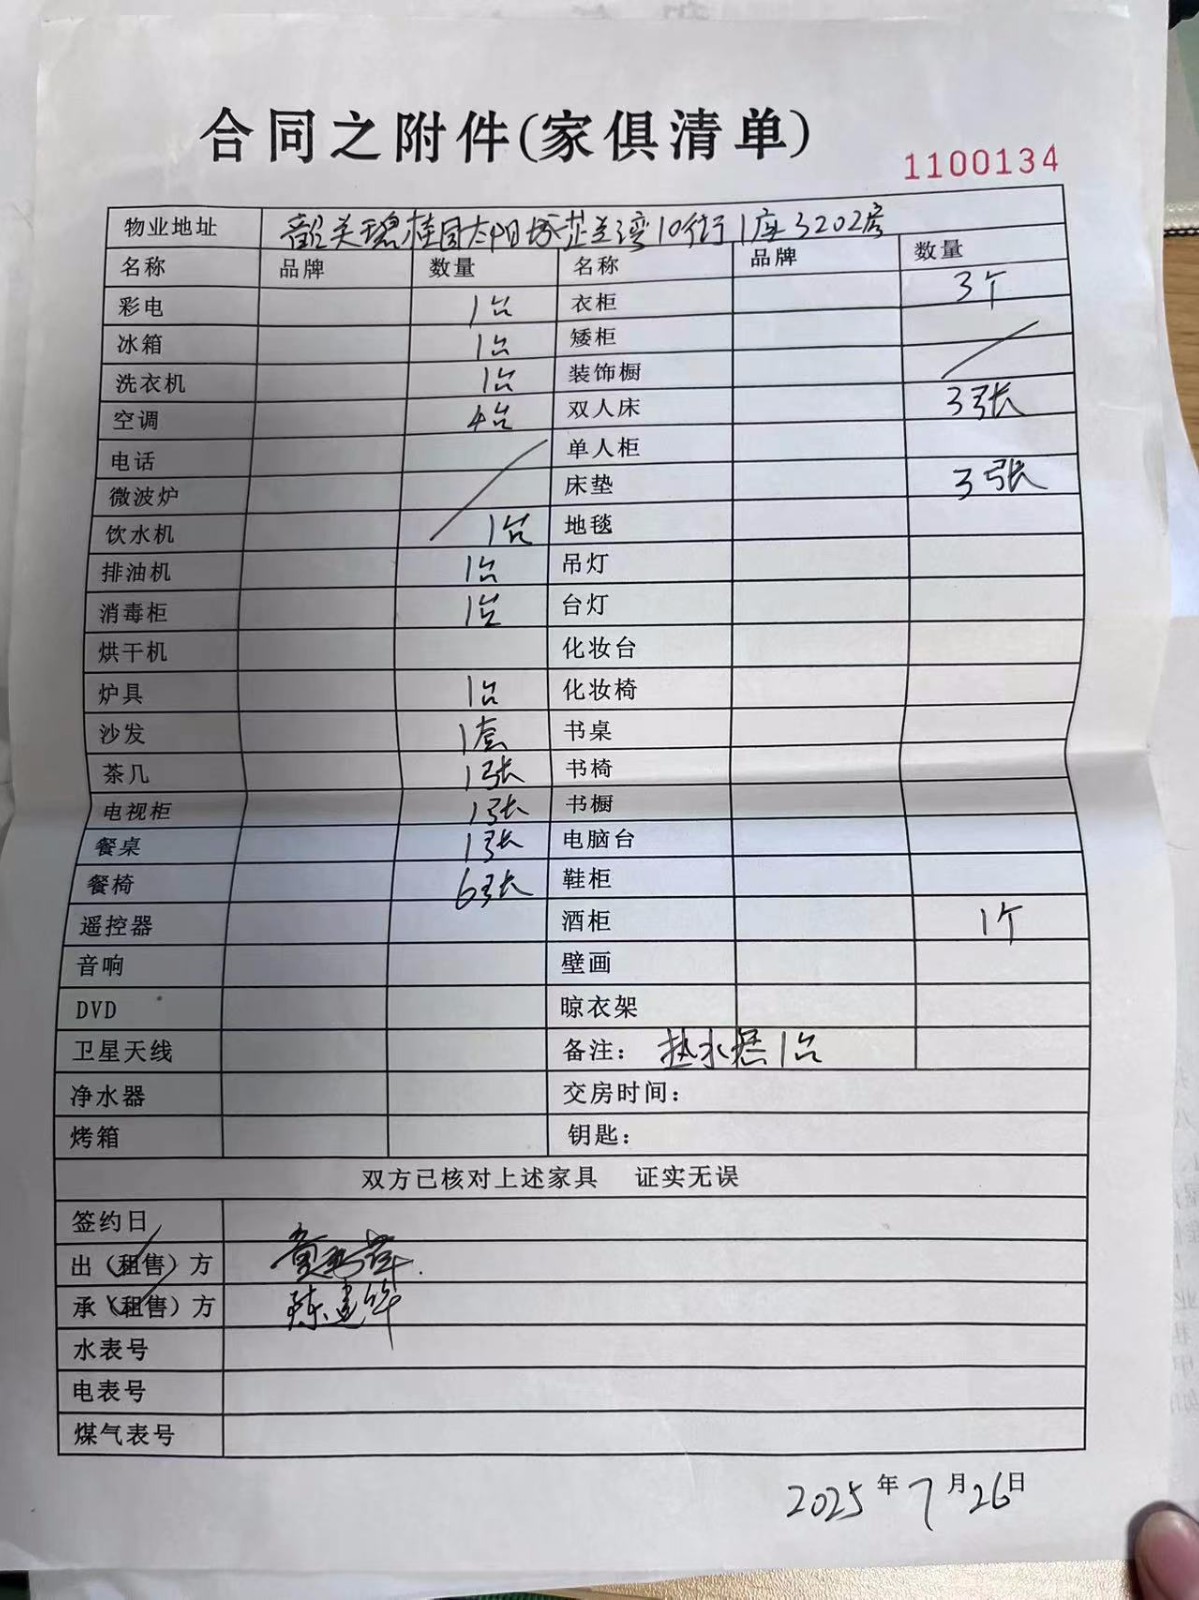 合同之附件(家俱清单)
1100134
物业地址 韶关碧桂园太阳城芷兰湾10街1座3202房
名称 品牌 数量 名称 品牌 数量
彩电 1台 衣柜 3个
冰箱 1台 矮柜
洗衣机 1台 装饰橱
空调 4台 双人床 3张
电话 单人柜
微波炉 床垫 3张
饮水机 1台 地毯
排油机 1台 吊灯
消毒柜 1台 台灯
烘干机 化妆台
炉具 1台 化妆椅
沙发 1套 书桌
茶几 1张 书椅
电视柜 1张 书橱
餐桌 1张 电脑台
餐椅 6张 鞋柜
遥控器 酒柜 1个
音响 壁画
DVD 晾衣架
卫星天线 备注： 热水器1台
净水器 交房时间：
烤箱 钥匙：
双方已核对上述家具 证实无误
签约日
出（租售）方
承（租售）方 陈建华
水表号
电表号
煤气表号
2025年7月26日